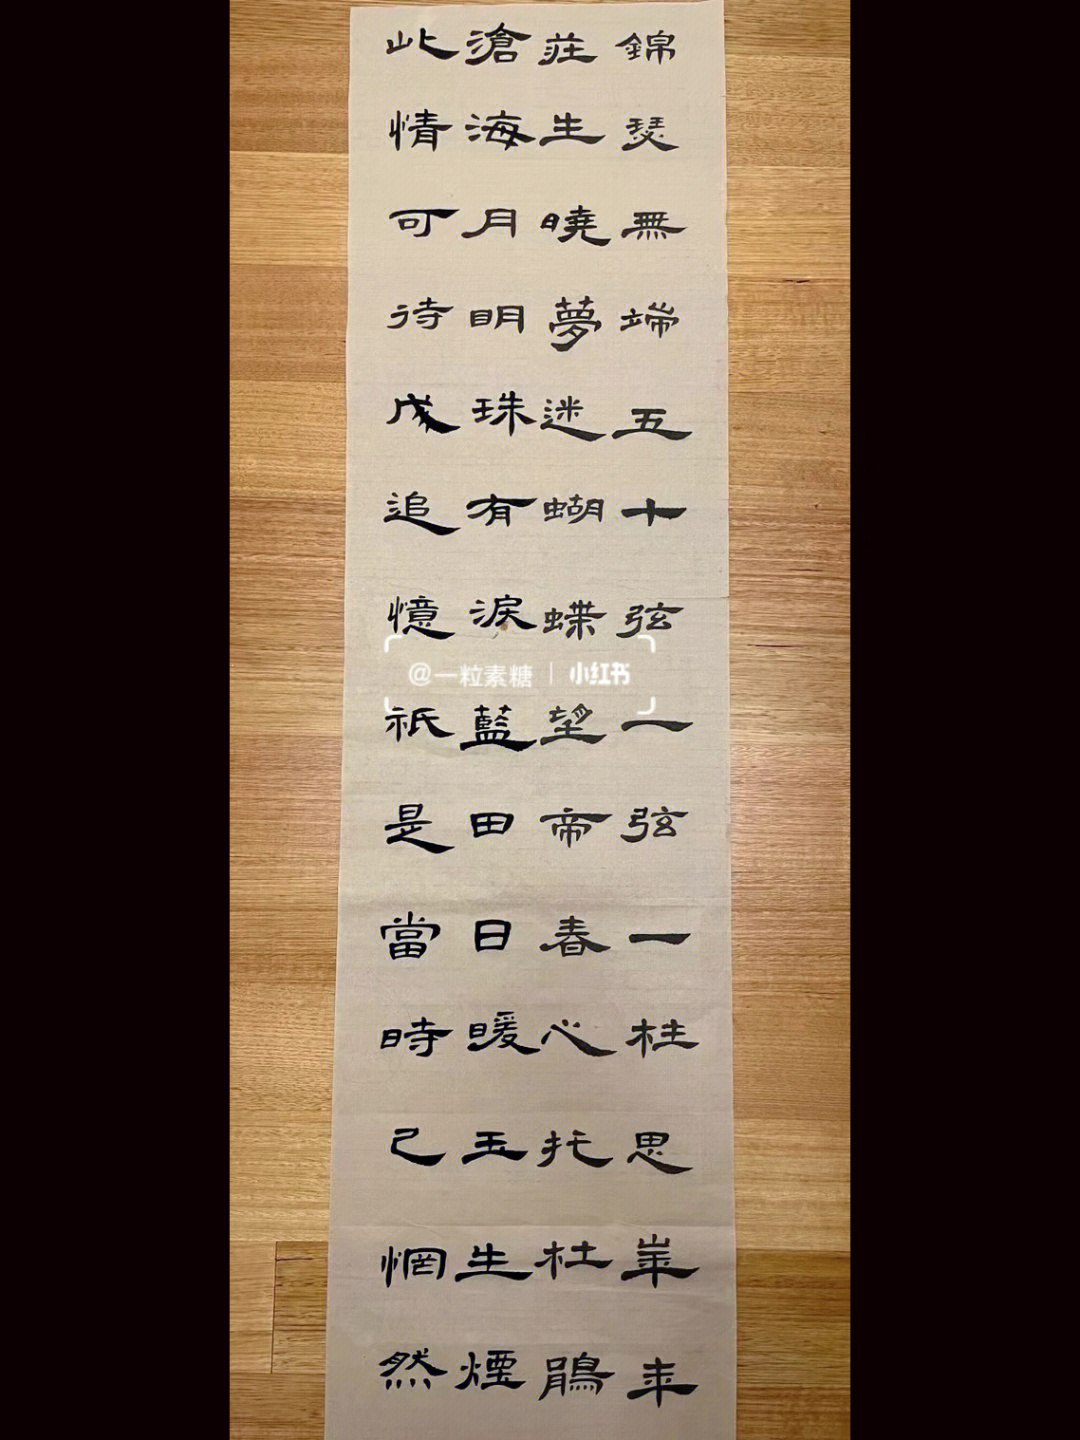 錦瑟無端五十弦一弦一柱思華年
莊生曉夢迷蝴蝶望帝春心托杜鵑
滄海月明珠有淚藍田日暖玉生煙
此情可待成追憶祇是當時已惘然
@一粒素糖 | 小红书